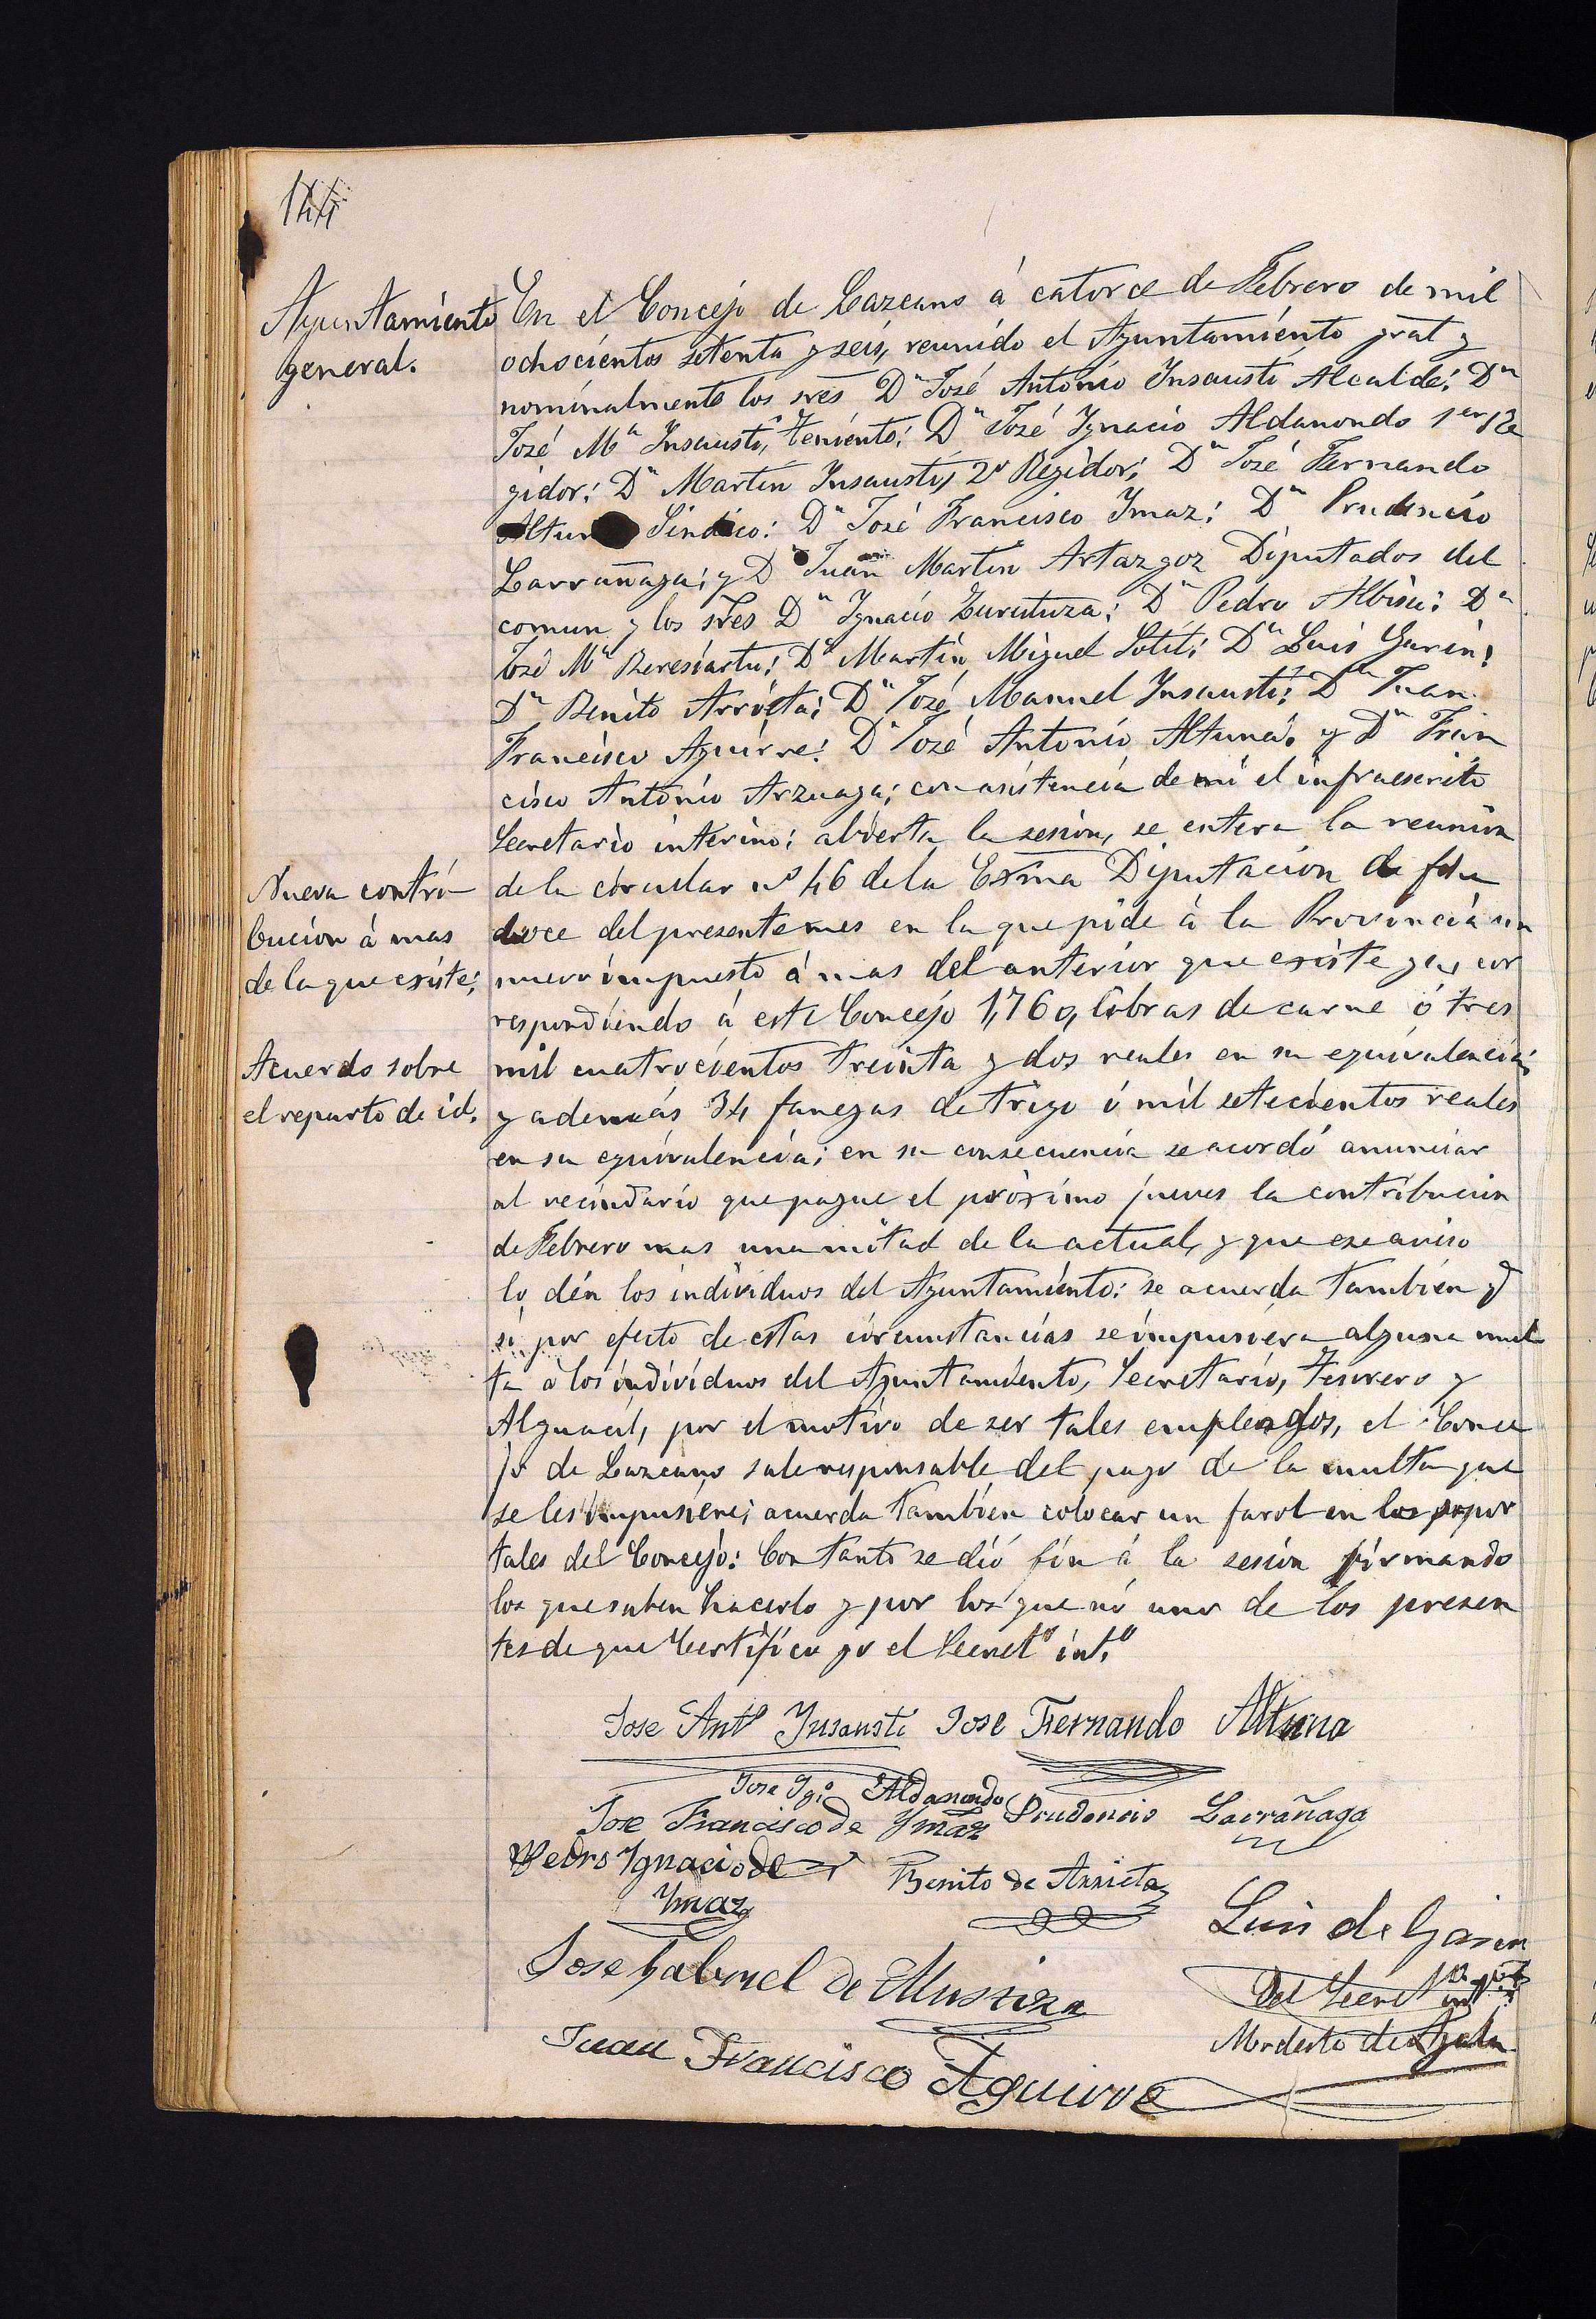 144
Ayuntamiento
general.
En el Concejo de Lazcano á catorce de Febrero de mil
ochocientos setenta y seis, reunido el Ayuntamiento gral y
nominalmente los sres Dn José Antonio Insausti Alcalde; Dn
José Ma Insausti, teniente; Dn José Ygnacio Aldanondo 1er Re
gidor; Dn Martin Insausti, 2o Regidor; Dn José Fernando
Altuna Sindico: Dn José Francisco Ymaz; Dn Prudencio
Larrañaga; y Dn Juan Martin Artazgoz Diputados del
comun y los sres Dn Ygnacio Zurutuza; Dn Pedro Albisu; Dn
José Ma Beresiartu; Dn Martin Miguel Sotil; Dn Luis Garin;
Dn Benito Arrieta; Dn José Manuel Insausti; Dn Juan
Francisco Aguirre; Dn José Antonio Altuna; y Dn Fran
cisco Antonio Arzuaga; con asistencia de mi el infraescrito
Secretario interino; abierta la sesion, se entera la reunion
Nueva contri-
bucion á mas
de la que existe;
de la circular no 46 de la Exma Diputacion de fha
doce del presente mes en la que pide á la Provincia un
nuevo impuesto á mas del anterior que existe ya, cor
respondiendo á este Concejo 1,760, libras de carne ó tres
Acuerdo sobre
el reparto de id.
mil cuatrocientos treinta y dos reales en su equivalencia;
y además 34 fanegas de trigo ó mil setecientos reales
en su equivalencia; en su consecuencia se acordó anunciar
al vecindario que pague el próximo jueves la contribucion
de Febrero mas una mitad de la actual, y que ese aviso
lo dén los individuos del Ayuntamiento: se acuerda tambien q
si por efecto de estas circunstancias se impusiera alguna mul
ta á los individuos del Ayuntamiento, Secretario, Tesorero y
Alguacil, por el motivo de ser tales empleados, el Conce
jo de Lazcano sale responsable del pago de la multa que
se les impusiere; acuerda tambien colocar un farol en los por
tales del Concejo: Con tanto se dió fin á la sesion firmando
los que saben hacerlo y por los que nó uno de los presen
tes de que Certifico yo el Secreto into
Jose Anto Ynsausti Jose Fernando Altuna
Jose Igo Aldanondo
Jose Francisco de Ymaz Prudencio Larrañaga
Pedro Ygnacio de
Ymaz
Benito de Arrieta
Luis de Garin
Jose Gabriel de Mustiza
Del Secreto into
Modesto de Ayala
Juan Francisco Aguirre